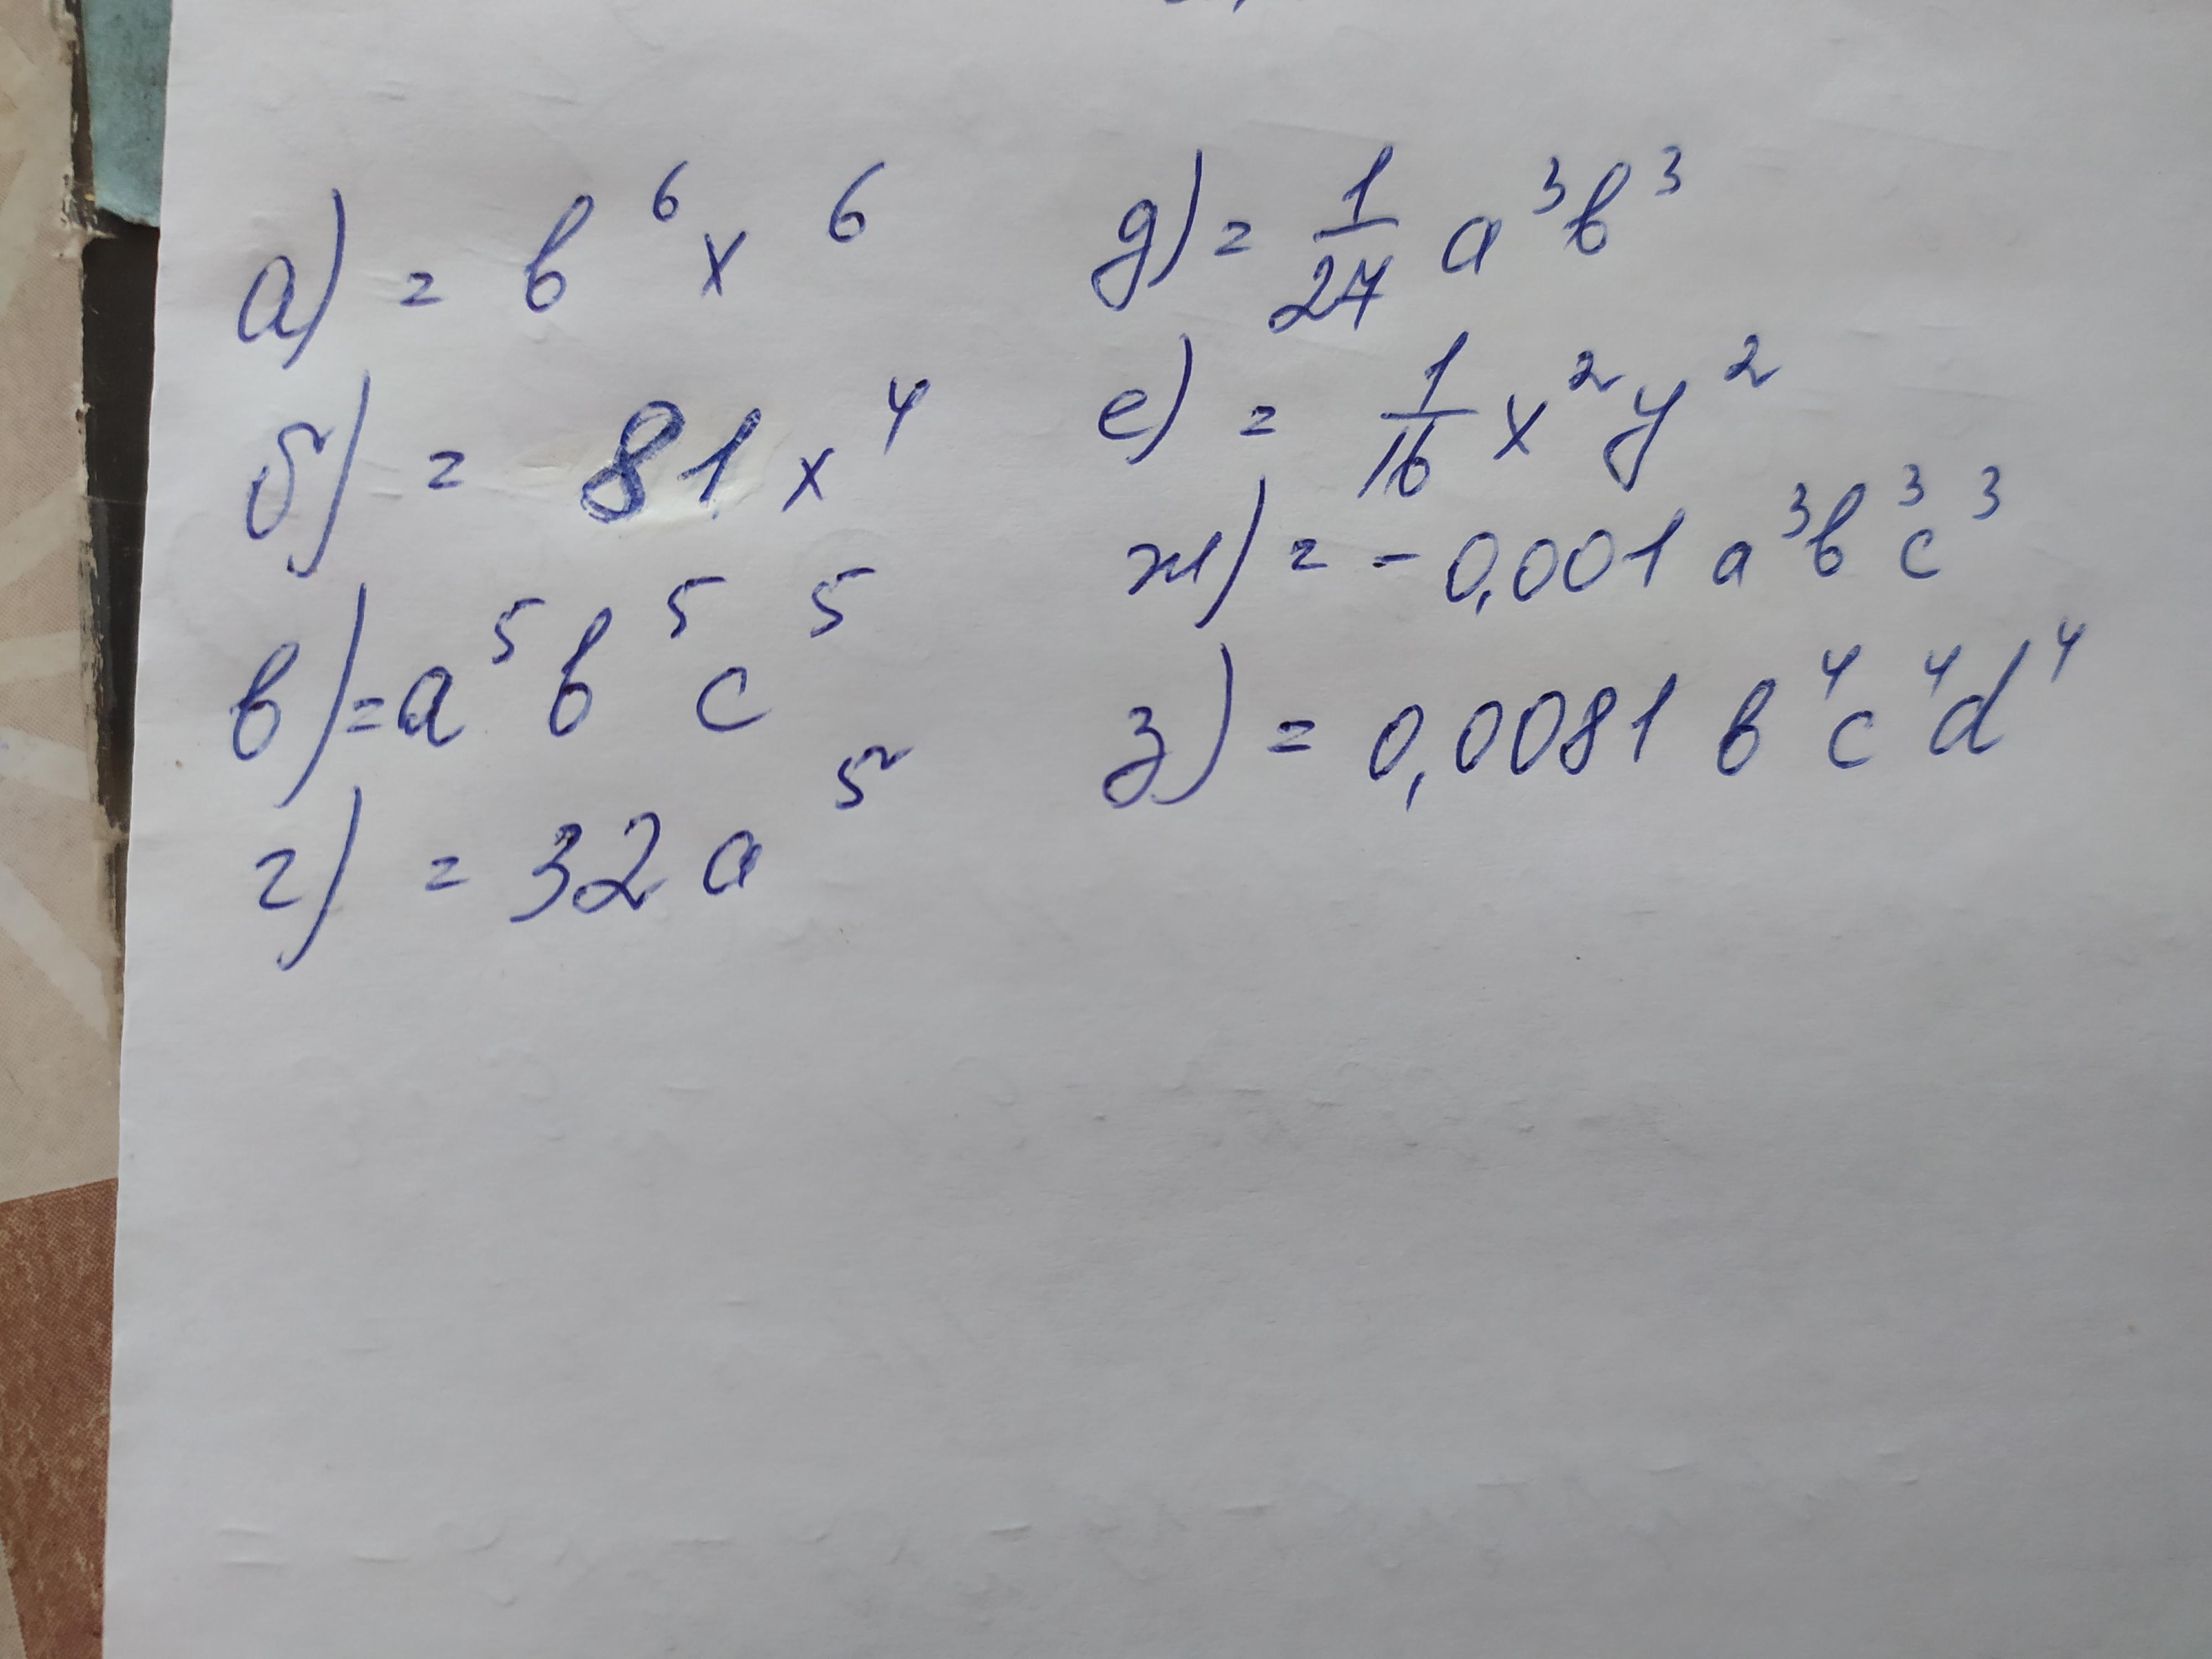 а) = b⁶x⁶
б) = 81x⁴
в) = a⁵b⁵c⁵
г) = 32a⁵
д) = 1/27 a³b³
е) = 1/16 x²y²
ж) = -0,001 a³b³c³
з) = 0,0081 b⁴c⁴d⁴